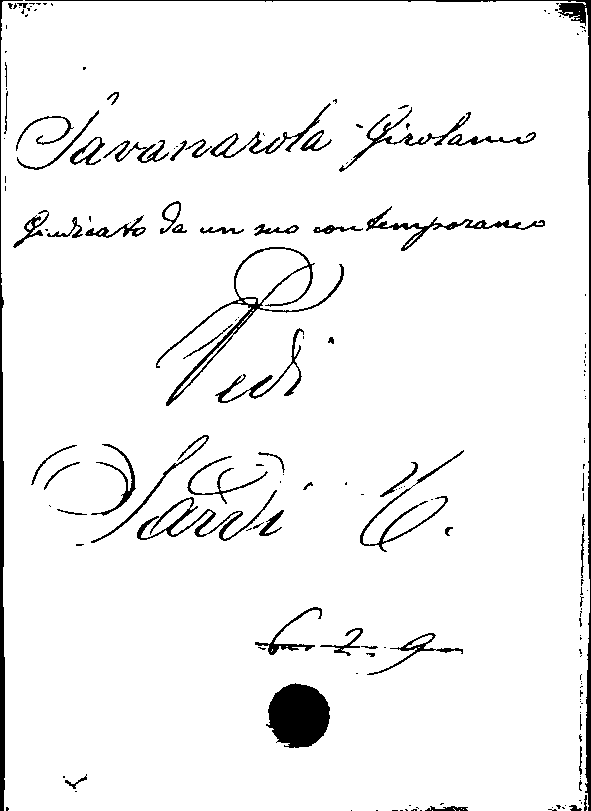 Savanarola - Girolamo
Giudicato da un suo contemporaneo
Vedi
Sardi C.
6. 2. 9